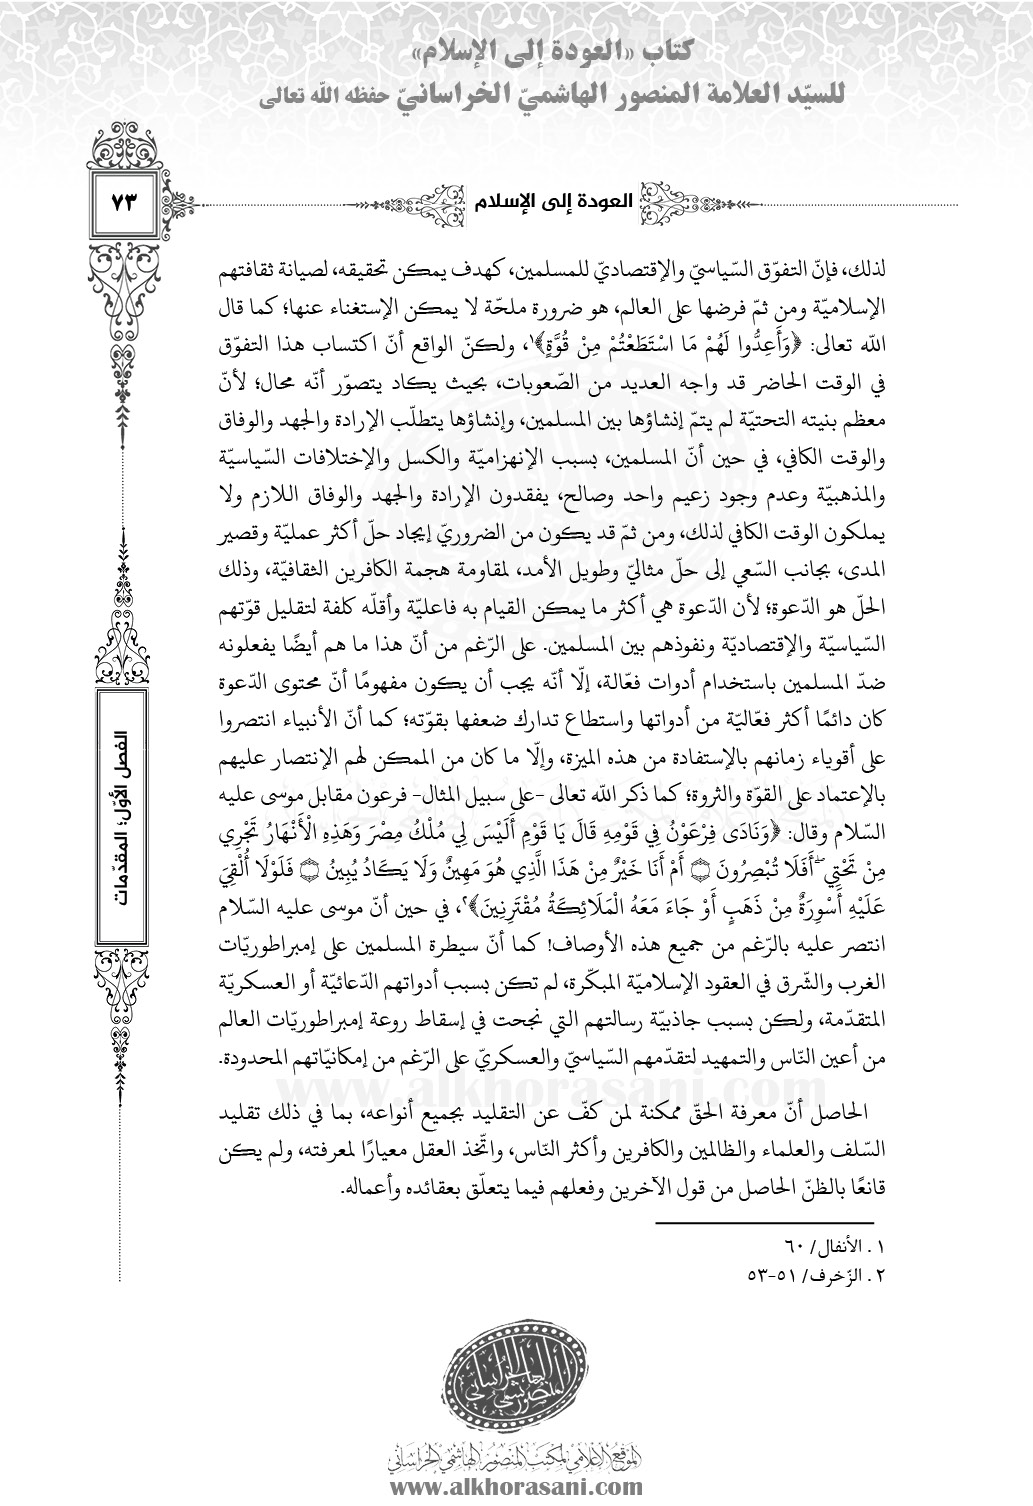 كتاب «العودة إلى الإسلام»
للسيّد العلامة المنصور الهاشميّ الخراسانيّ حفظه الله تعالى
٧٣
العودة إلى الإسلام
لذلك، فإنّ التفوّق السّياسيّ والإقتصاديّ للمسلمين، كهدف يمكن تحقيقه، لصيانة ثقافتهم
الإسلاميّة ومن ثمّ فرضها على العالم، هو ضرورة ملحّة لا يمكن الإستغناء عنها؛ كما قال
الله تعالى: ﴿وَأَعِدُّوا لَهُمْ مَا اسْتَطَعْتُمْ مِنْ قُوَّةٍ﴾١، ولكنّ الواقع أنّ اكتساب هذا التفوّق
في الوقت الحاضر قد واجه العديد من الصّعوبات، بحيث يكاد يتصوّر أنّه محال؛ لأنّ
معظم بنيته التحتيّة لم يتمّ إنشاؤها بين المسلمين، وإنشاؤها يتطلّب الإرادة والجهد والوفاق
والوقت الكافي، في حين أنّ المسلمين، بسبب الإنهزاميّة والكسل والإختلافات السّياسيّة
والمذهبيّة وعدم وجود زعيم واحد وصالح، يفقدون الإرادة والجهد والوفاق اللازم ولا
يملكون الوقت الكافي لذلك، ومن ثمّ قد يكون من الضروريّ إيجاد حلّ أكثر عمليّة وقصير
المدى، بجانب السّعي إلى حلّ مثاليّ وطويل الأمد، لمقاومة هجمة الكافرين الثقافيّة، وذلك
الحلّ هو الدّعوة؛ لأن الدّعوة هي أكثر ما يمكن القيام به فاعليّة وأقلّه كلفة لتقليل قوّتهم
السّياسيّة والإقتصاديّة ونفوذهم بين المسلمين. على الرّغم من أنّ هذا ما هم أيضًا يفعلونه
ضدّ المسلمين باستخدام أدوات فعّالة، إلّا أنّه يجب أن يكون مفهومًا أنّ محتوى الدّعوة
كان دائمًا أكثر فعّاليّة من أدواتها واستطاع تدارك ضعفها بقوّته؛ كما أنّ الأنبياء انتصروا
على أقوياء زمانهم بالإستفادة من هذه الميزة، وإلّا ما كان من الممكن لهم الإنتصار عليهم
بالإعتماد على القوّة والثروة؛ كما ذكر الله تعالى -على سبيل المثال- فرعون مقابل موسى عليه
السّلام وقال: ﴿وَنَادَى فِرْعَوْنُ فِي قَوْمِهِ قَالَ يَا قَوْمِ أَلَيْسَ لِي مُلْكُ مِصْرَ وَهَذِهِ الْأَنْهَارُ تَجْرِي
مِنْ تَحْتِي ۖ أَفَلَا تُبْصِرُونَ ۝ أَمْ أَنَا خَيْرٌ مِنْ هَذَا الَّذِي هُوَ مَهِينٌ وَلَا يَكَادُ يُبِينُ ۝ فَلَوْلَا أُلْقِيَ
عَلَيْهِ أَسْوِرَةٌ مِنْ ذَهَبٍ أَوْ جَاءَ مَعَهُ الْمَلَائِكَةُ مُقْتَرِنِينَ﴾٢، في حين أنّ موسى عليه السّلام
انتصر عليه بالرّغم من جميع هذه الأوصاف! كما أنّ سيطرة المسلمين على إمبراطوريّات
الغرب والشّرق في العقود الإسلاميّة المبكّرة، لم تكن بسبب أدواتهم الدّعائيّة أو العسكريّة
المتقدّمة، ولكن بسبب جاذبيّة رسالتهم التي نجحت في إسقاط روعة إمبراطوريّات العالم
من أعين النّاس والتمهيد لتقدّمهم السّياسيّ والعسكريّ على الرّغم من إمكانيّاتهم المحدودة.
الحاصل أنّ معرفة الحقّ ممكنة لمن كفّ عن التقليد بجميع أنواعه، بما في ذلك تقليد
السّلف والعلماء والظالمين والكافرين وأكثر النّاس، واتّخذ العقل معيارًا لمعرفته، ولم يكن
قانعًا بالظنّ الحاصل من قول الآخرين وفعلهم فيما يتعلّق بعقائده وأعماله.
١ . الأنفال/ ٦٠
٢ . الزّخرف/ ٥١-٥٣
الفصل الأوّل؛ المقدّمات
www.alkhorasani.com
المنصور الهاشمي الخراساني
الموقع الإعلامي لمكتب المنصور الهاشمي الخراساني
www.alkhorasani.com